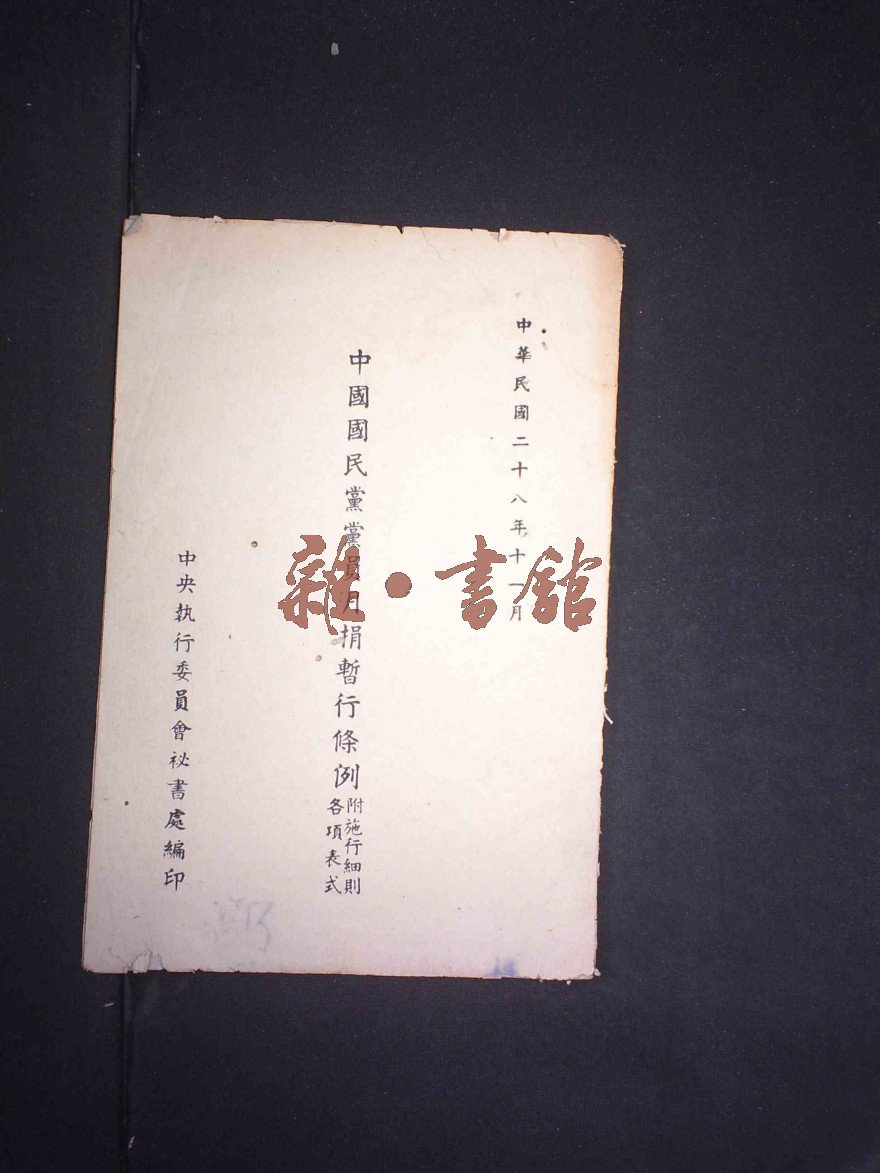 中華民國二十八年十一月
中國國民黨黨員月捐暫行條例
附施行細則
各項表式
中央執行委員會祕書處編印
雜·書館